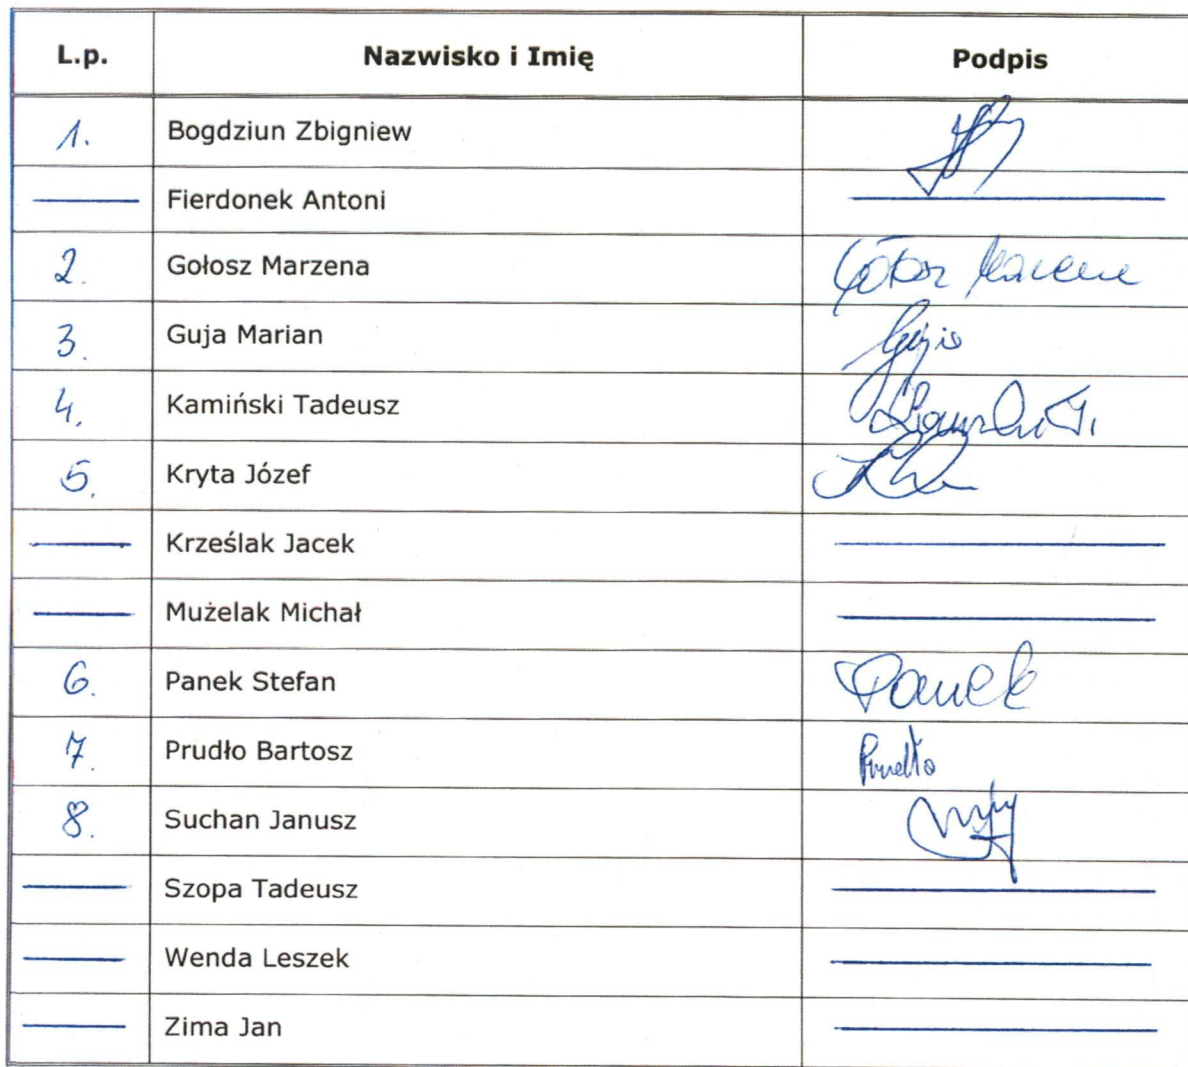 L.p. Nazwisko i Imię Podpis
1. Bogdziun Zbigniew
Fierdonek Antoni
2. Gołosz Marzena
3. Guja Marian Guja
4. Kamiński Tadeusz
5. Kryta Józef
Krześlak Jacek
Mużelak Michał
6. Panek Stefan Panek
7. Prudło Bartosz Prudło
8. Suchan Janusz
Szopa Tadeusz
Wenda Leszek
Zima Jan